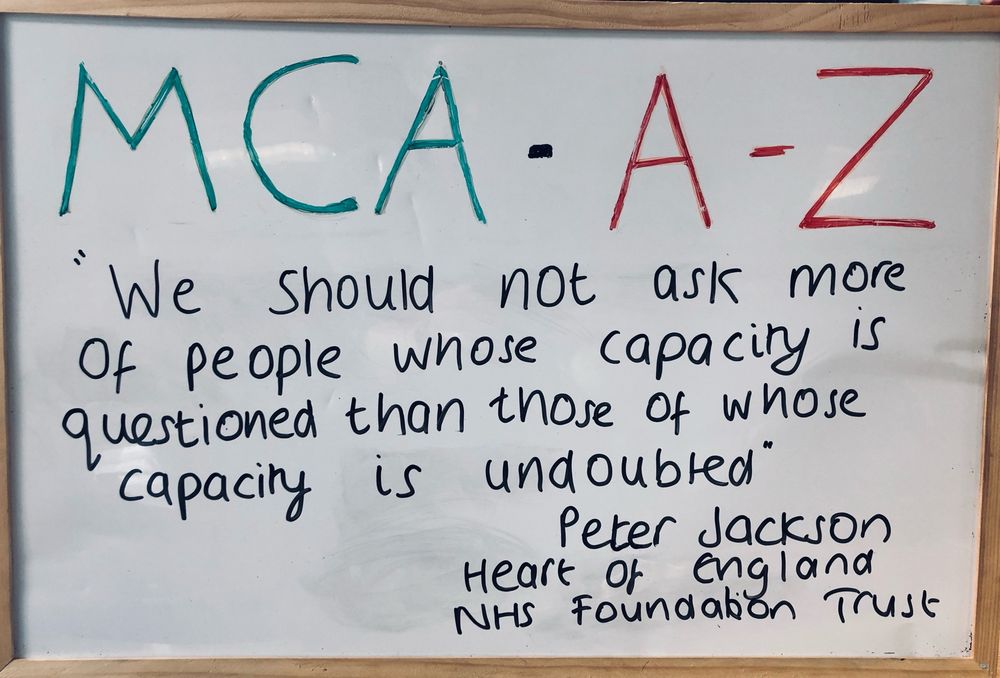 MCA - A-Z
"We should not ask more
of people whose capacity is
questioned than those of whose
capacity is undoubted"
Peter Jackson
Heart of England
NHS Foundation Trust